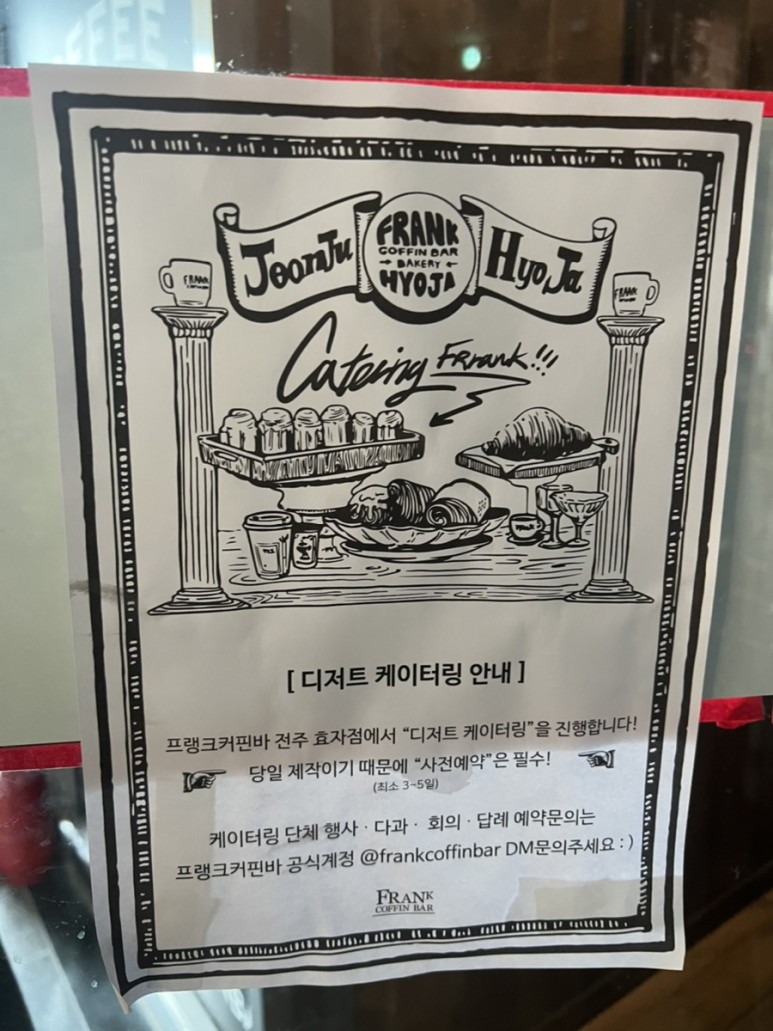 FFEE
JeonJu
FRANK
COFFIN BAR
BAKERY
HYOJA
HyoJa
FRANK
FRANK
Catering Frank!!!
[ 디저트 케이터링 안내 ]
프랭크커핀바 전주 효자점에서 “디저트 케이터링”을 진행합니다!
당일 제작이기 때문에 “사전예약”은 필수!
(최소 3~5일)
케이터링 단체 행사 · 다과 · 회의 · 답례 예약문의는
프랭크커핀바 공식계정 @frankcoffinbar DM문의주세요 : )
FRANK
COFFIN BAR